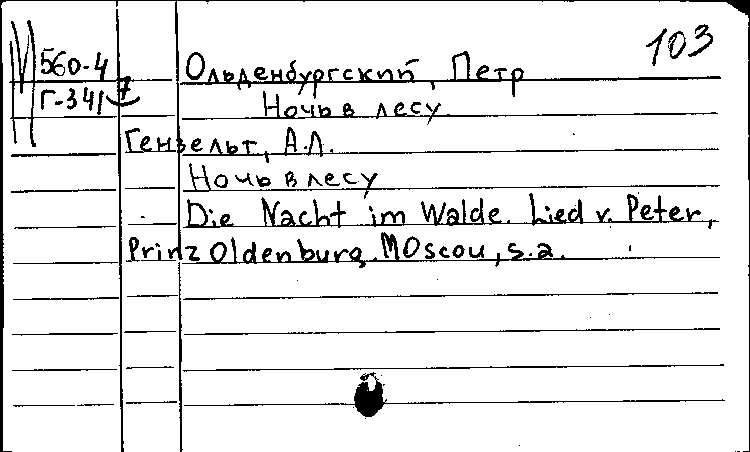 103
М 560-4 Ольденбургский, Петр
Г-341 7 Ночь в лесу
Гензельт, А.Л.
Ночь в лесу
Die Nacht im Walde. Lied v. Peter,
Prinz Oldenburg. Moscou, s.a.